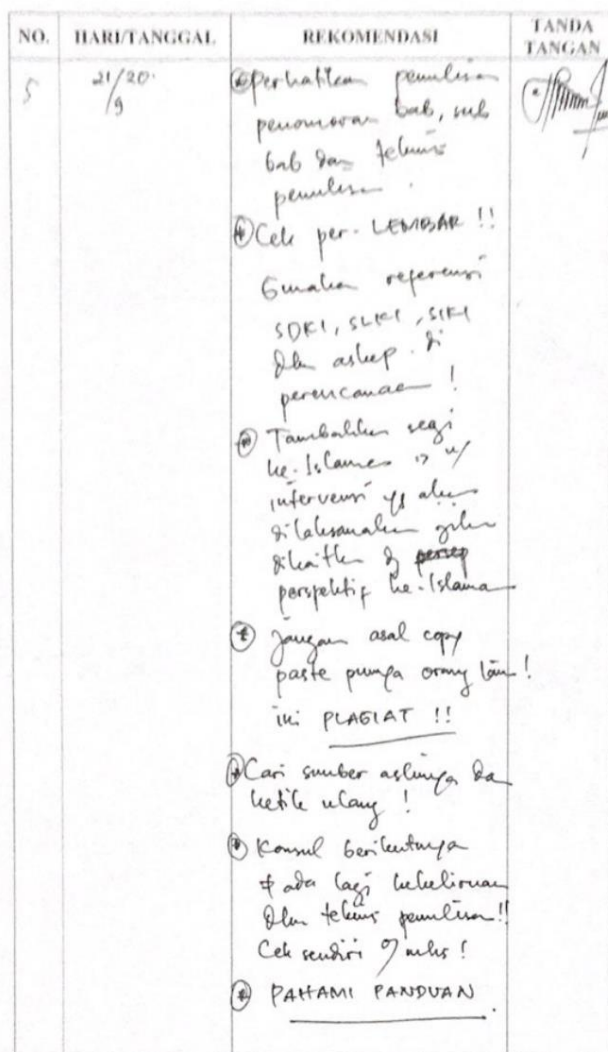 NO. HARI/TANGGAL REKOMENDASI TANDA TANGAN
5 21/20. /9 Perhatikan penulisan
penomoran bab, sub
bab dan teknis
penulisan .
Cek per- LEMBAR !!
Gunakan referensi
SDKI, SLKI, SIKI
dlm askep. di
perencanaan !
Tambahkan segi
ke-Islaman u/
intervensi yg akan
dilaksanakan
dikaitkan dg persep
perspektif ke-Islama
Jangan asal copy
paste punya orang lain !
ini PLAGIAT !!
Cari sumber aslinya da
ketik ulang !
Konsul berikutnya
ada lagi kekeliruan
dlm teknis penulisan !!
Cek sendiri !
PAHAMI PANDUAN .